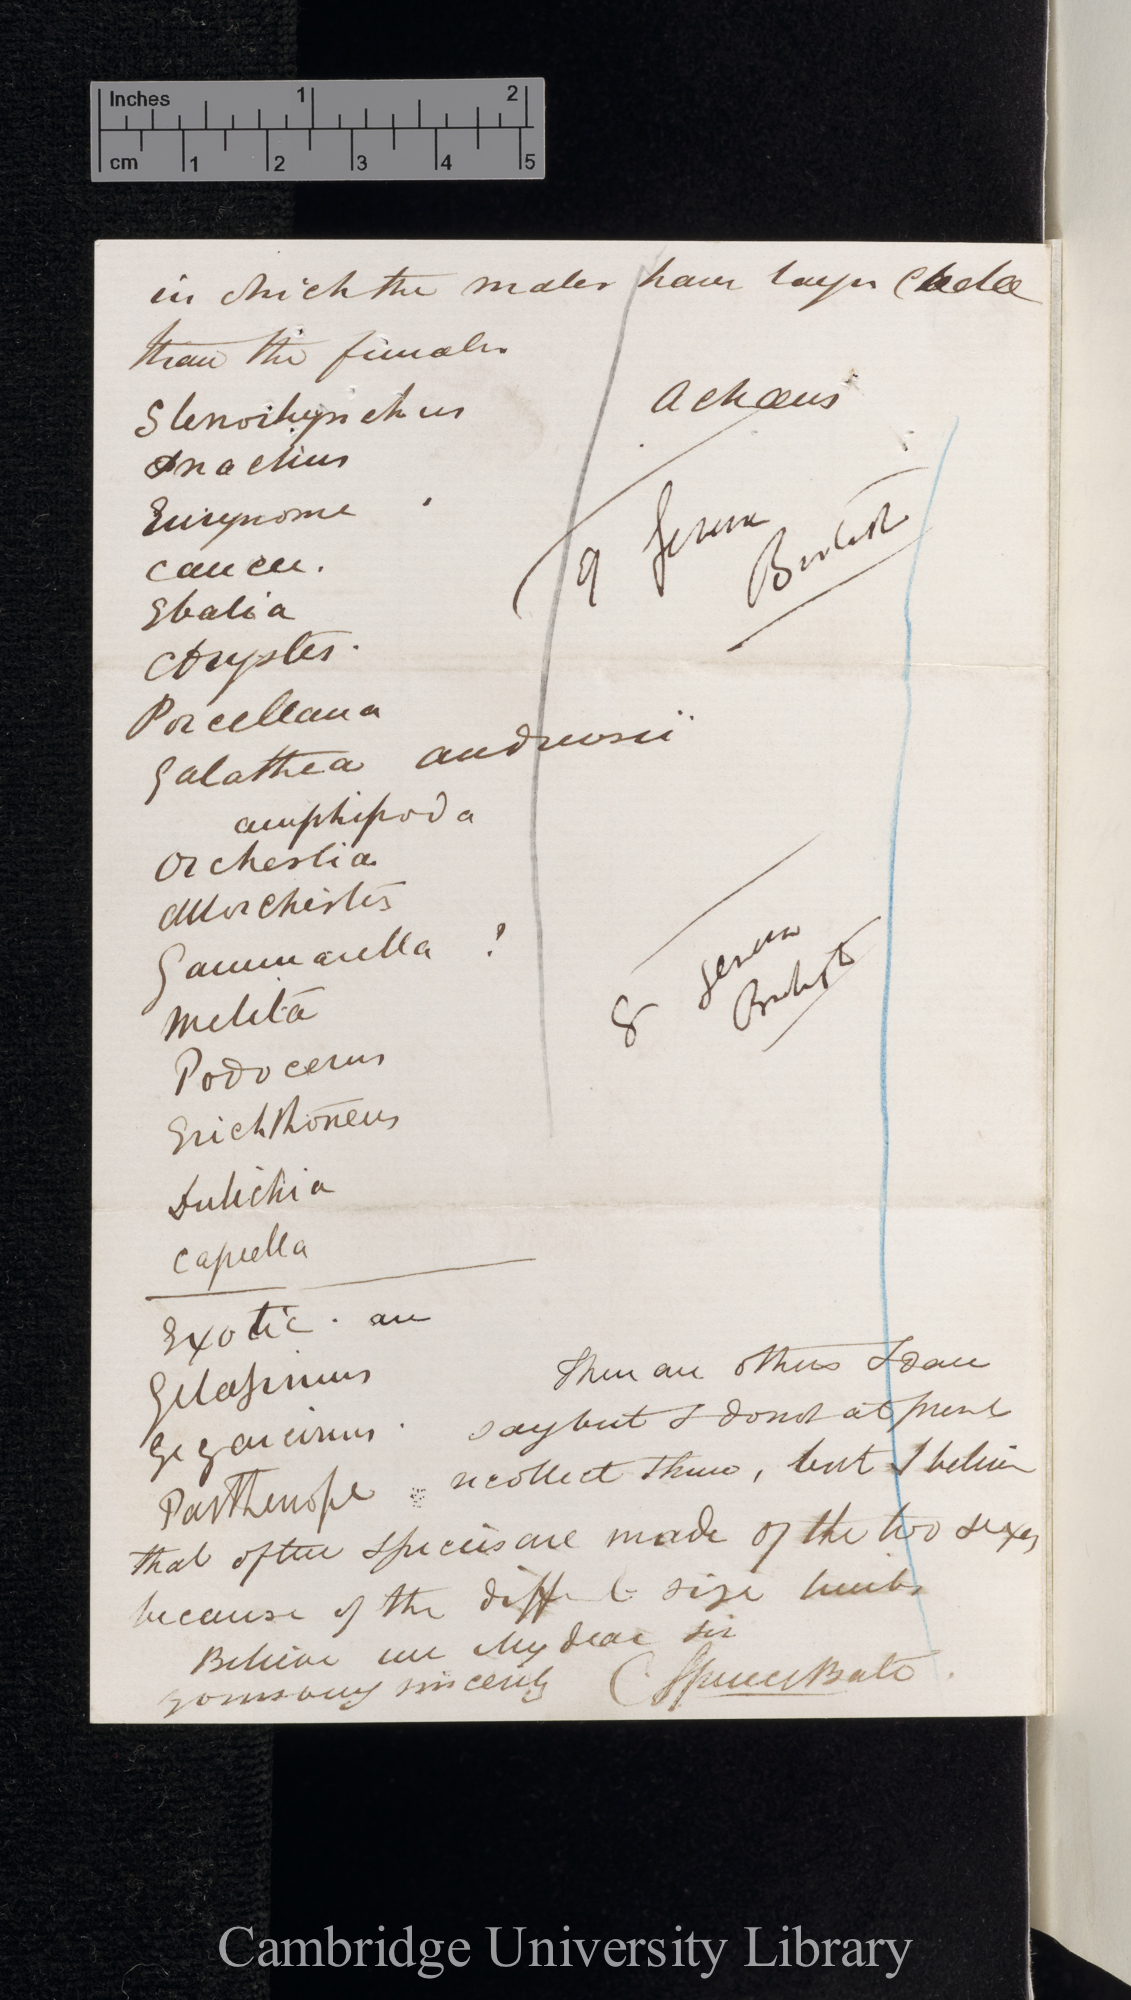 Inches 1 2
cm 1 2 3 4 5
in which the males have larger Chelæ
than the females
Stenorhynchus
Achæus
Inachus
Eurynome
Cancer.
9 Genera
British
Ebalia
Corystes.
Porcellana
Galathea andrewsii
amphipoda
Orchestia
Allorchestes
Gammarella ?
Melita
8 Genera
British
Podocerus
Erichthoneus
Dulichia
Caprella
Exotic. are
Gelasimus
Gegarcinus.
Parthenope
There are others I dare
say but I do not at present
recollect them, but I believe
that often species are made of the two sexes
because of the different size limbs
Believe me My dear Sir
yours very sincerely C Spence Bate.
Cambridge University Library